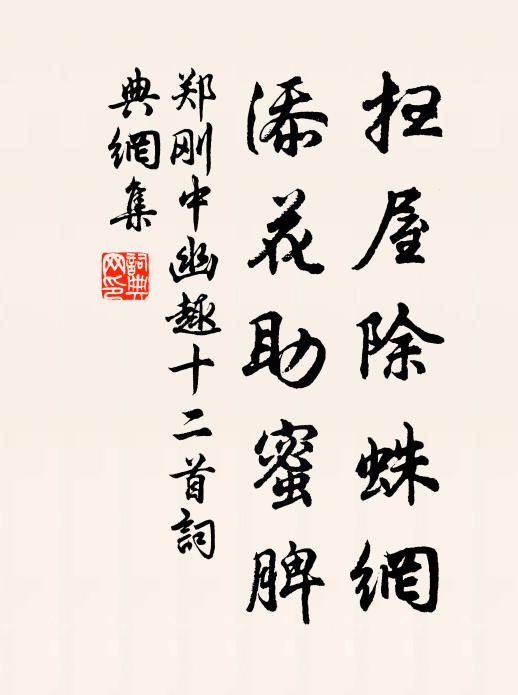 扫屋除蛛網
添花助蜜脾
郑刚中幽趣十二首詞
典網集
詞典
网印